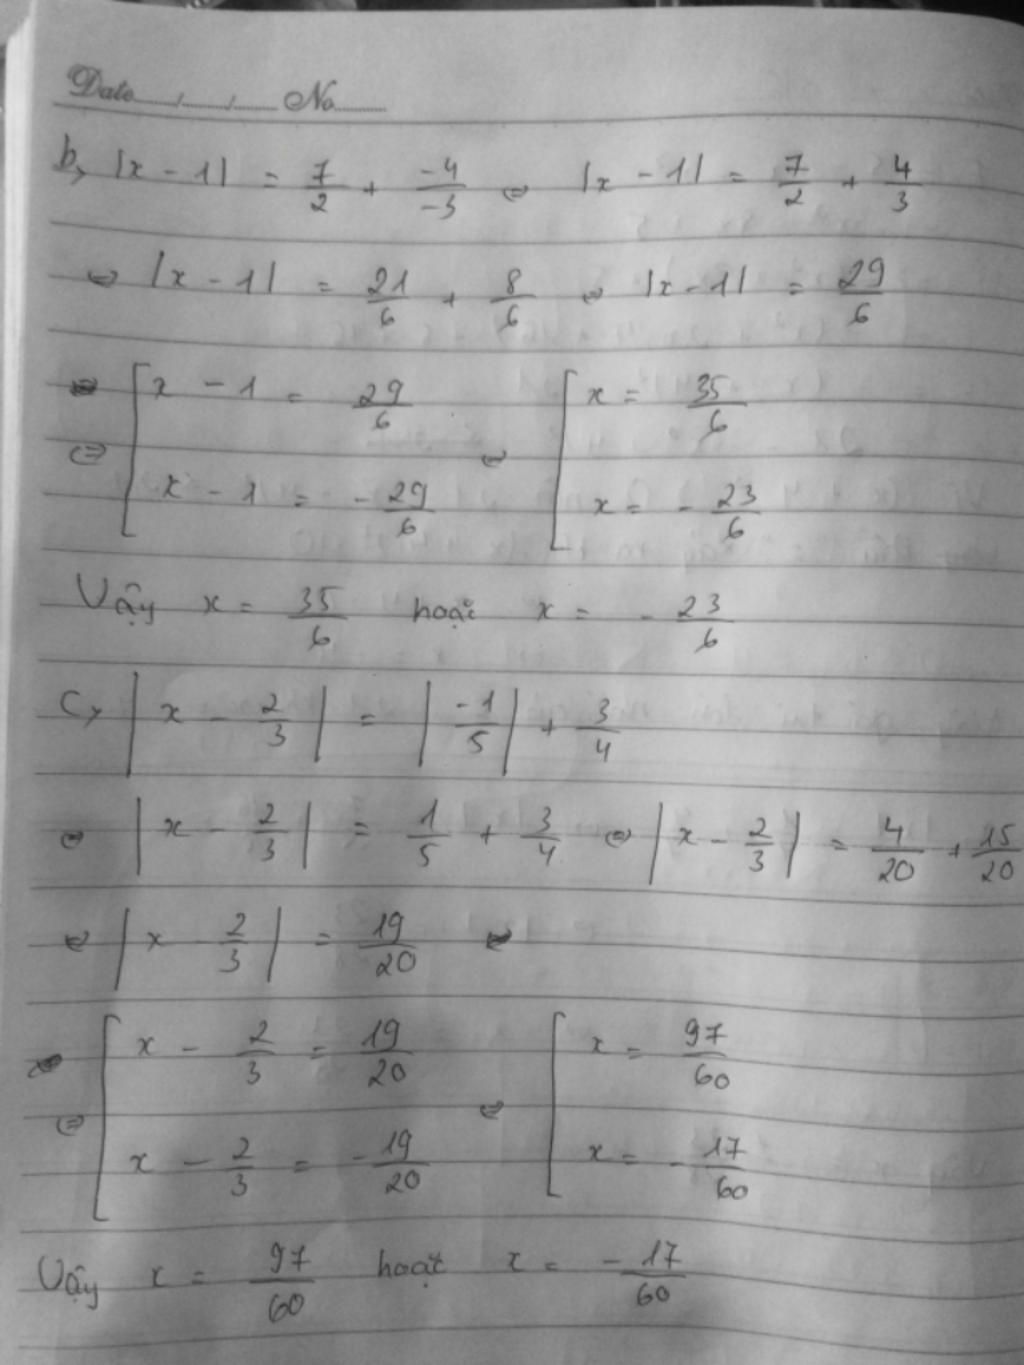 Date ..../..../.... No.......
b, |x - 1| = 7/2 + -4/-3 ⇔ |x - 1| = 7/2 + 4/3
⇔ |x - 1| = 21/6 + 8/6 ⇔ |x - 1| = 29/6
⇔ [ x - 1 = 29/6 ⇔ [ x = 35/6
x - 1 = - 29/6 x = - 23/6
Vậy x = 35/6 hoặc x = - 23/6
c, |x - 2/3| = |-1/5| + 3/4
⇔ |x - 2/3| = 1/5 + 3/4 ⇔ |x - 2/3| = 4/20 + 15/20
⇔ |x - 2/3| = 19/20
⇔ [ x - 2/3 = 19/20 ⇔ [ x = 97/60
x - 2/3 = - 19/20 x = - 17/60
Vậy x = 97/60 hoặc x = - 17/60